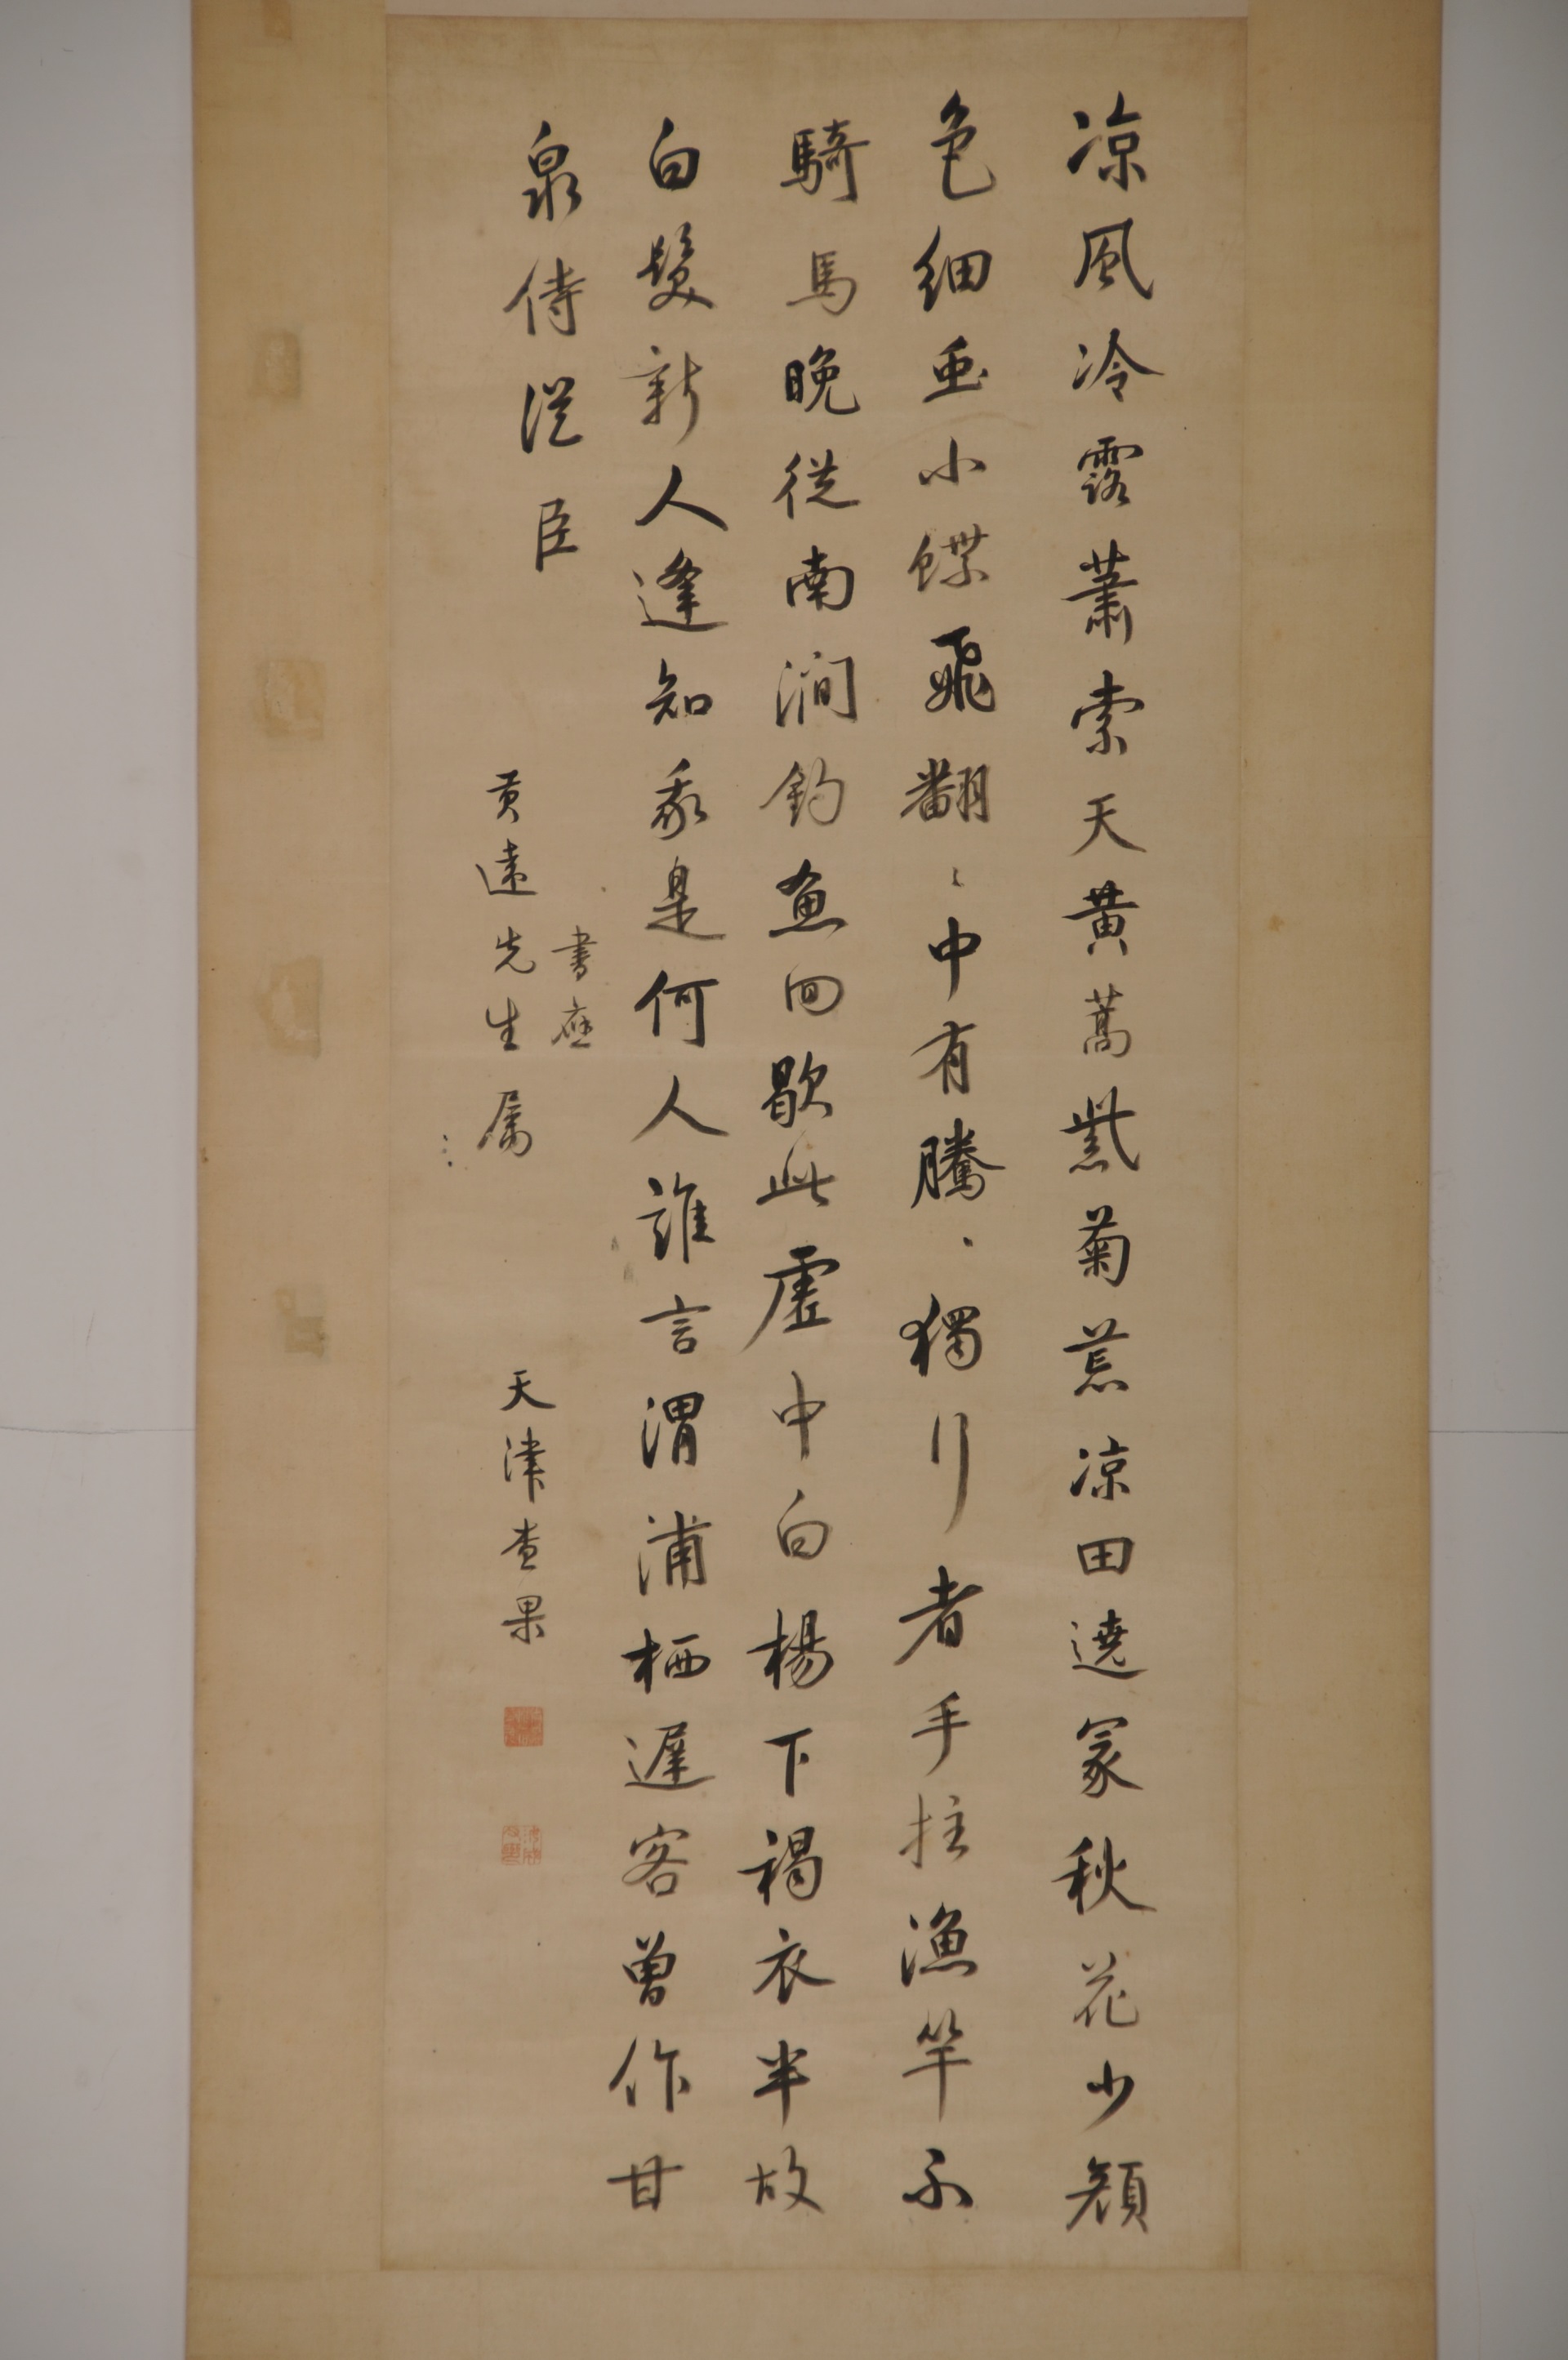 凉風冷露蕭索天黃蒿紫菊荒凉田遶冢秋花少顏
色細虫小蝶飛翻〻中有騰〻獨行者手拄漁竿不
騎馬晚從南澗釣魚回歇此虛中白楊下褐衣半故
白髮新人逢知我是何人誰言渭浦栖遲客曾作甘
泉侍從臣
書應
遠先生屬
天津查果